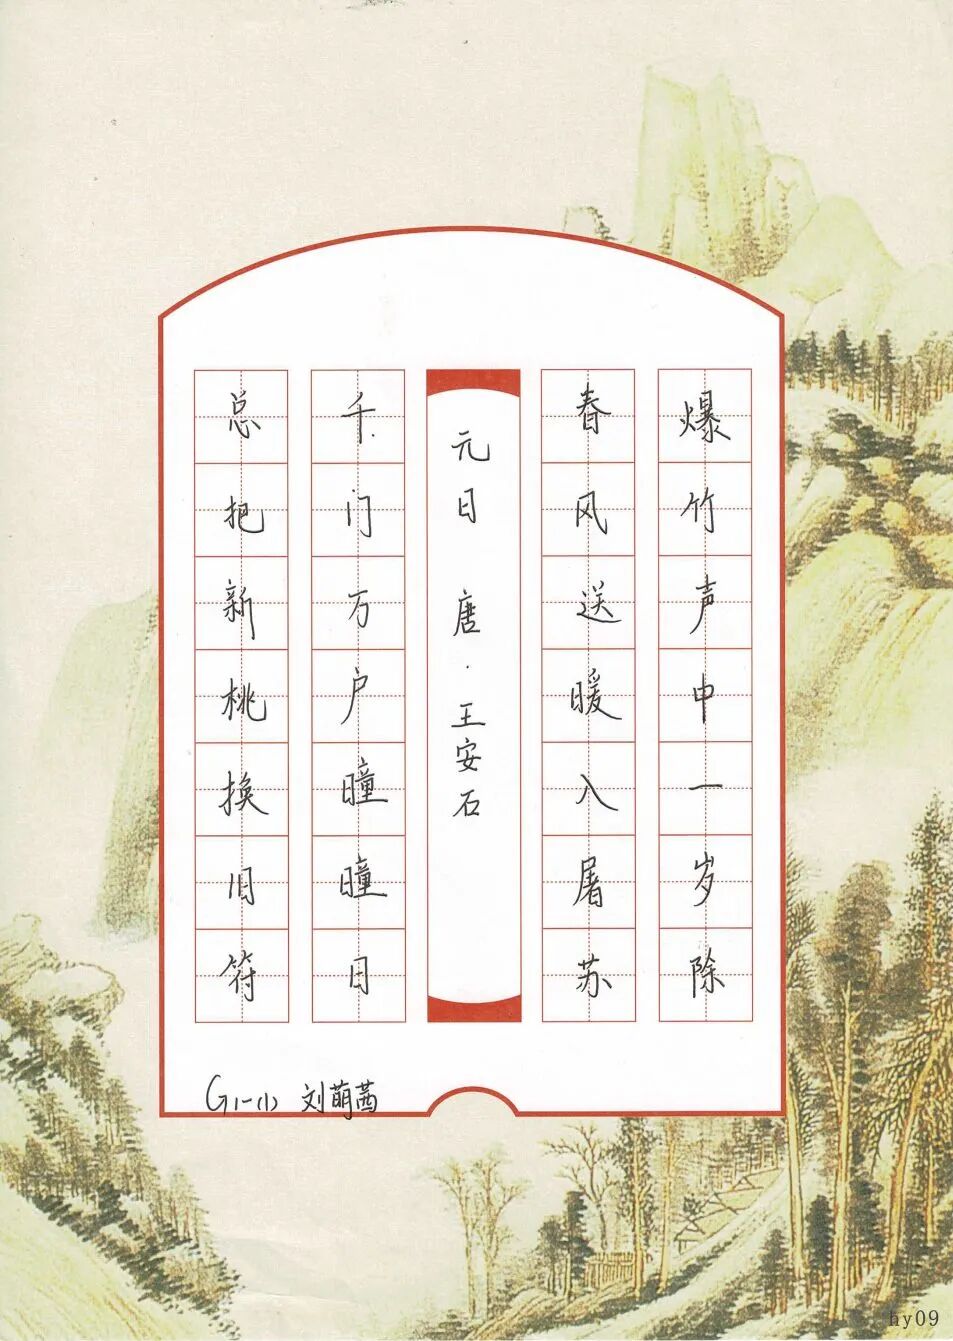 爆竹声中一岁除
春风送暖入屠苏
元日 唐·王安石
千门万户曈曈日
总把新桃换旧符
G1-(1) 刘萌茜
hy09